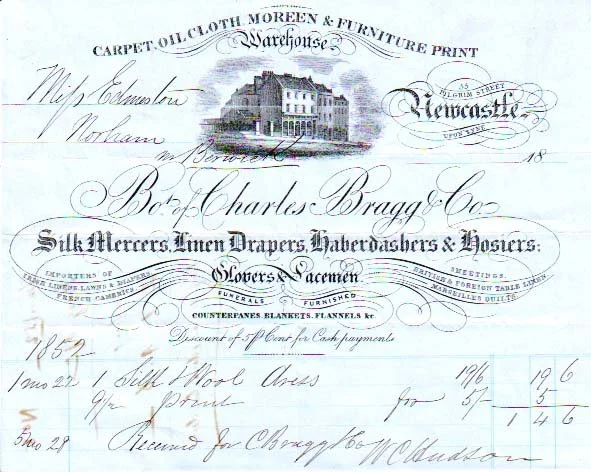 CARPET, OIL CLOTH, MOREEN & FURNITURE PRINT
Warehouse
Miss Edmeston
Norham
nr Berwick
55
PILGRIM STREET
Newcastle
UPON TYNE
18
Bot. of Charles Bragg & Co
Silk Mercers, Linen Drapers, Haberdashers & Hosiers;
Glovers & Lacemen
IMPORTERS OF
IRISH LINENS, LAWNS & DIAPERS,
FRENCH CAMBRICS
FUNERALS FURNISHED
SHEETINGS,
BRITISH & FOREIGN TABLE LINEN
MARSEILLES QUILTS,
COUNTERPANES, BLANKETS, FLANNELS &c
Discount of 5 P Cent for Cash payments
1852
1 mo 22 1 Silk & Wool dress 19/6 19 6
9 1/2 print for 5/- 5
1 4 6
5 mo 28 Received for C Bragg & Co
W C Hudson